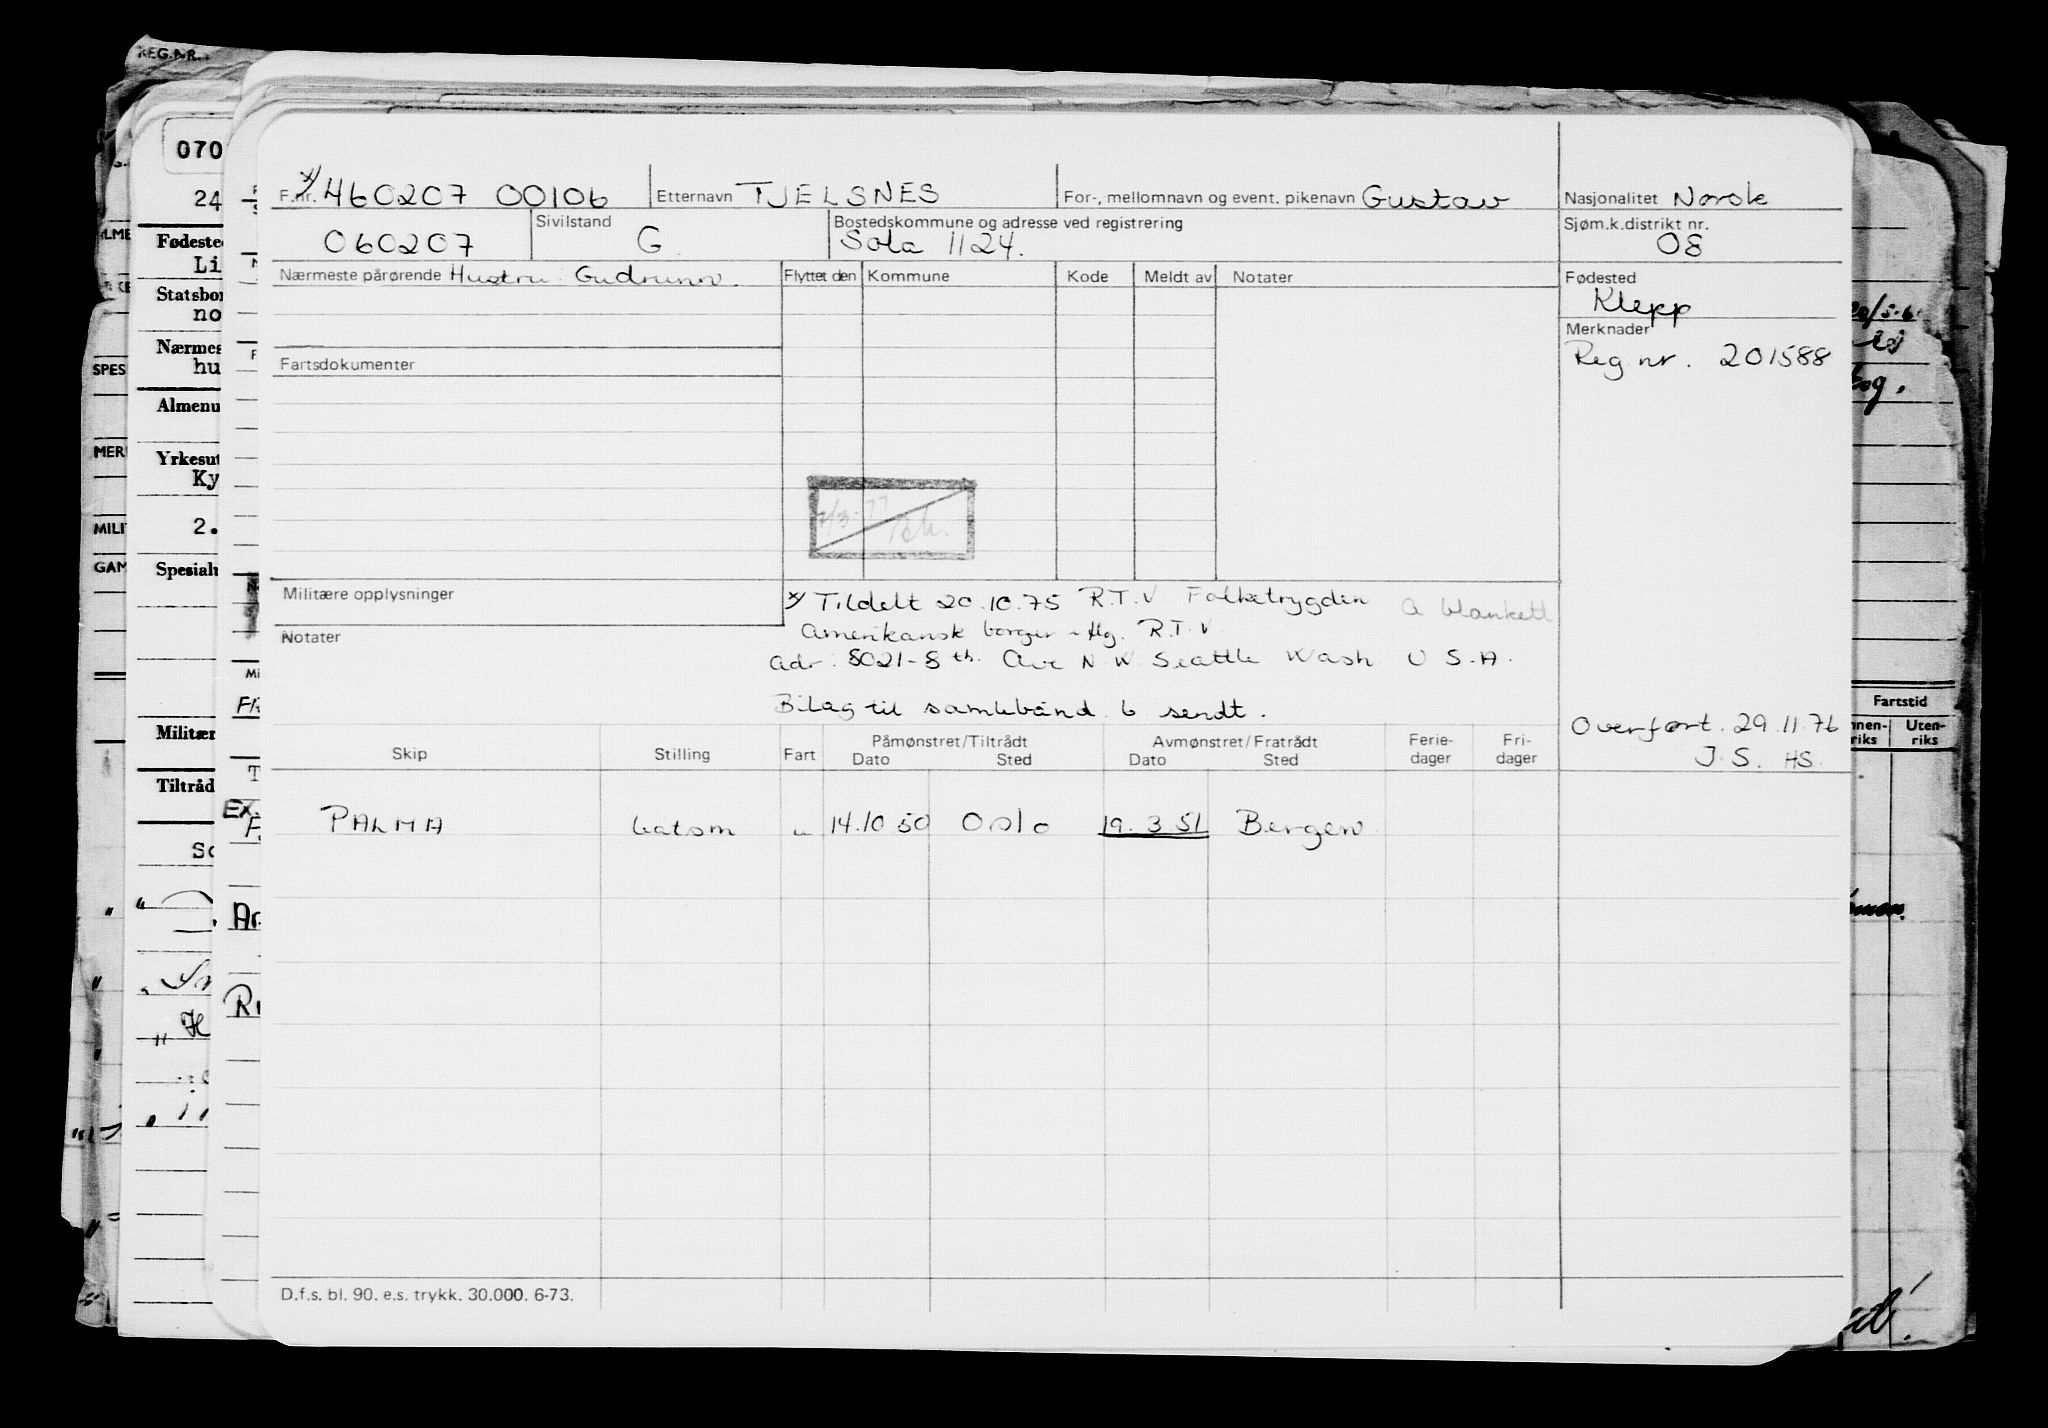 REG.NR.
070
x/
F.nr. 460207 00106 Etternavn TJELSNES For-, mellomnavn og event. pikenavn Gustav Nasjonalitet Norsk
060207 Sivilstand G Bostedskommune og adresse ved registrering Sola 1124. Sjøm.k.distrikt nr. 08
Nærmeste pårørende Hustru: Gudrunn. Flyttet den Kommune Kode Meldt av Notater Fødested
Klepp
Merknader
Reg.nr. 201588
Fartsdokumenter
Militære opplysninger
x/ Tildelt 20.10.75 R.T.V Folketrygden A blankett
Notater
Amerikansk borger i flg. R.T.V.
Adr: 8021-8th. Ave N W Seattle Wash U S.A.
Bilag til samlebånd 6 sendt.
Overført. 29.11.76
J.S. HS.
Skip Stilling Fart Påmønstret/Tiltrådt Avmønstret/Fratrådt Ferie- Fri-
Dato Sted Dato Sted dager dager
PALMA batsm u 14.10.50 Oslo 19.3 51 Bergen
D.f.s. bl. 90. e.s. trykk. 30.000. 6-73.
24
Fødested
Li
Statsbor
no
Nærmes
hu
Almenu
Yrkesut
Ky
2.
Spesialu
Militær
Tiltråd
SPES
MER
MILIT
GAM
Fartstid
Innen- Uten-
riks riks